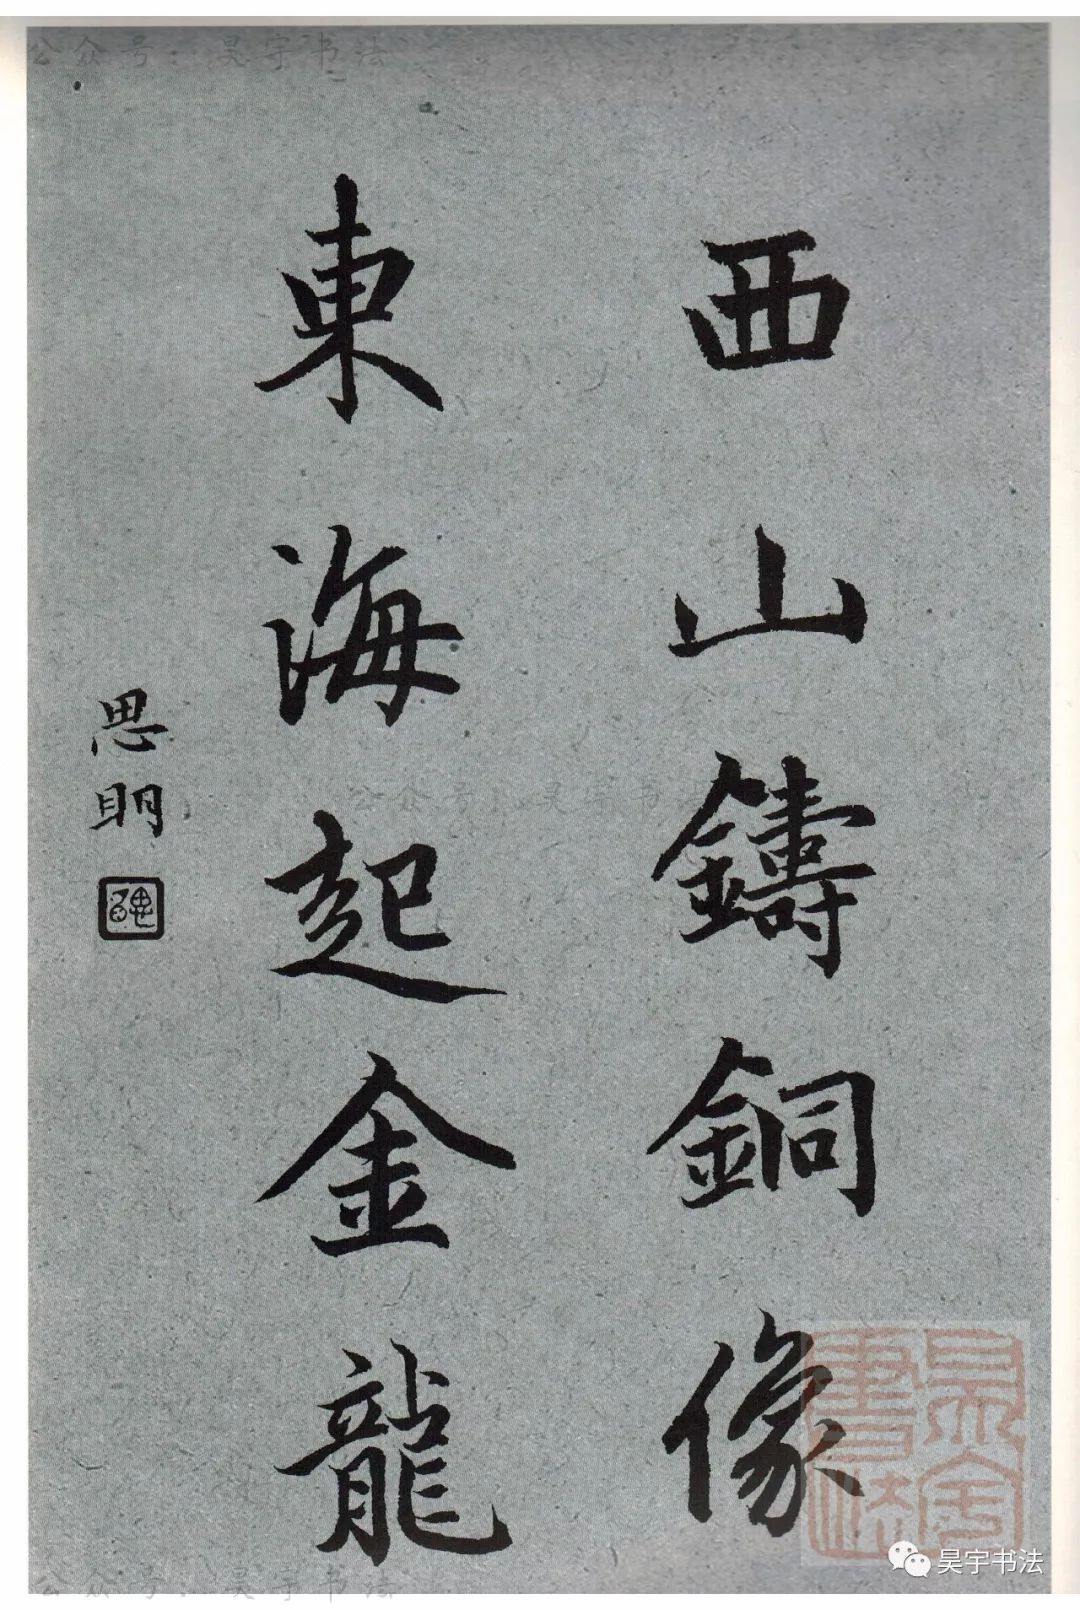 公众号：昊宇书法
西山鑄銅像
東海起金龍
思明
公众号：昊宇书法
昊宇書法
昊宇书法
公众号：昊宇书法